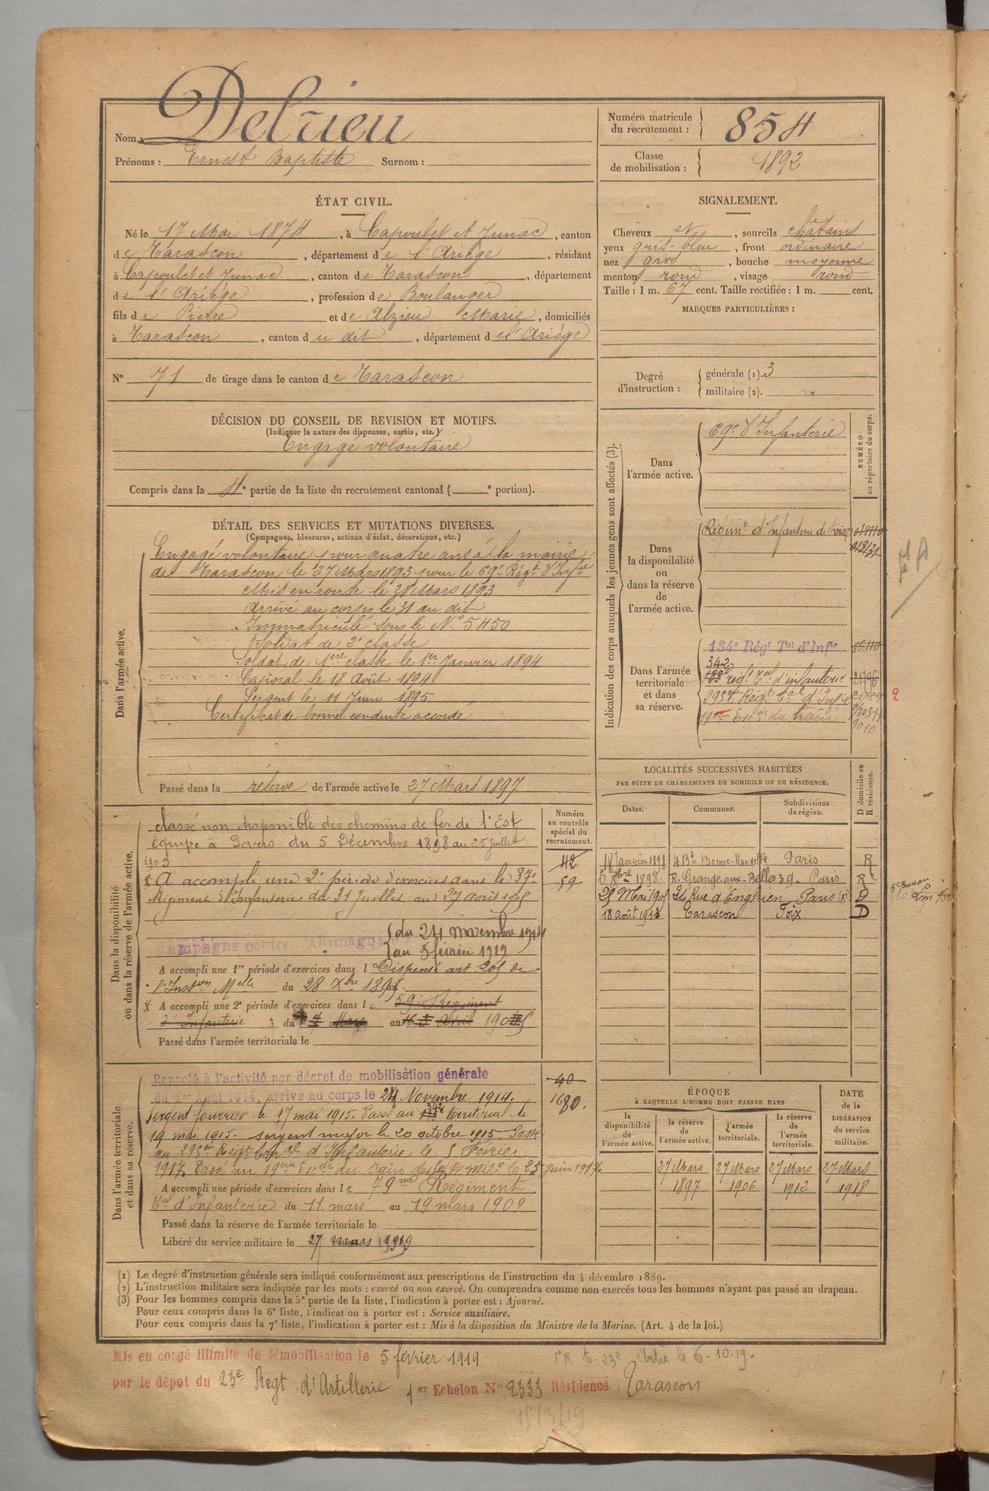 Nom : Delrieu
Prénoms : Ernest Baptiste Surnom :
Numéro matricule
du recrutement : 854
Classe
de mobilisation : 1892
ÉTAT CIVIL.
Né le 17 Mai 1874, à Capoulet et Junac, canton
de Tarascon, département de l'Ariège, résidant
à Capoulet et Junac, canton de Tarascon, département
de l'Ariège, profession de Boulanger
fils de Pierre et de Alzieu Marie, domiciliés
à Tarascon, canton du dit, département de l'Ariège
N° 71 de tirage dans le canton de Tarascon
SIGNALEMENT.
Cheveux et, sourcils châtains
yeux gris-bleu, front ordinaire
nez gros, bouche moyenne
menton rond, visage rond
Taille : 1 m. 67 cent. Taille rectifiée : 1 m. cent.
MARQUES PARTICULIÈRES :
Degré
d'instruction :
générale (1). 3
militaire (2).
DÉCISION DU CONSEIL DE REVISION ET MOTIFS.
(Indiquer la nature des dispenses, sursis, etc.)
Engagé volontaire
Compris dans la 4e partie de la liste du recrutement cantonal ( e portion).
DÉTAIL DES SERVICES ET MUTATIONS DIVERSES.
(Campagnes, blessures, actions d'éclat, décorations, etc.)
Dans l'armée active.
Engagé volontaire pour quatre ans à la mairie
de Tarascon le 27 Mars 1893 pour le 69e Régt d'Infie
Mis en route le 28 Mars 1893
Arrivé au corps le 31 du dit
Immatriculé sous le N° 5450
Soldat de 2e classe
Soldat de 1ère classe le 1er Janvier 1894
Caporal le 18 Août 1894
Sergent le 11 Juin 1895
Certificat de bonne conduite accordé
Passé dans la réserve de l'armée active le 27 Mars 1897
Indication des corps auxquels les jeunes gens sont affectés (3).
NUMÉRO
au répertoire du corps.
Dans
l'armée active.
69e d'Infanterie
Dans
la disponibilité
ou
dans la réserve
de
l'armée active.
Régimt d'Infanterie de Foix
Dans l'armée
territoriale
et dans
sa réserve.
134e Régt Tal d'Infie
342
régt Tal d'infanterie
295e Régt Tal d'Infie
19me Escon du train
LOCALITÉS SUCCESSIVES HABITÉES
PAR SUITE DE CHANGEMENTS DE DOMICILE OU DE RÉSIDENCE.
Dates.
Communes.
Subdivisions
de région.
D domicile ou
R résidence.
18 Janvier 1898 4 Bd Bonne-Nouvelle Paris R
R. Grange-aux-Belles 39 Paris R
Rue d'Enghien Paris D
18 août 1913 Tarascon Foix D
Dans la disponibilité
ou dans la réserve de l'armée active.
Numéro
au contrôle
spécial du
recrutement.
42
59
classé non disponible des chemins de fer de l'Est
du 5 Décembre 1898 au 25 Juillet
1903
A accompli une 2e période d'exercices dans le 37e
Régiment d'Infanterie du 31 Juillet au 27 août 1905
Campagne contre l'Allemagne
du 24 novembre 1914
au 5 février 1919
A accompli une 1re période d'exercices dans l Dispensé art 205 de
l'Inston Melle du 28 Xbre 1895
A accompli une 2e période d'exercices dans le 59e Régiment
d'Infanterie du 4 Mars au Avril
Passé dans l'armée territoriale le
Dans l'armée territoriale
et dans sa réserve.
40
Rappelé à l'activité par décret de mobilisation générale
du 1er Août 1914, arrivé au corps le 24 Novembre 1914.
Sergent fourrier le 17 mai 1915. Passé au territorial le
19 mai 1915. sergent major le 20 octobre 1915. Passé
au 295e Régt Tal d'Infanterie le 5 Février
1917. Passé au 19me Escon du train le 25 juin 1917
A accompli une période d'exercices dans le 79me Régiment
Tal d'Infanterie du 11 mars au 19 mars 1909
Passé dans la réserve de l'armée territoriale le
Libéré du service militaire le 27 mars 1919
ÉPOQUE
À LAQUELLE L'HOMME DOIT PASSER DANS
DATE
de la
LIBÉRATION
du service
militaire.
la
disponibilité
de
l'armée active.
la réserve
de
l'armée active.
l'armée
territoriale.
la réserve
de
l'armée
territoriale.
27 Mars 27 Mars 27 Mars 27 Mars
1897 1906 1912 1918
(1) Le degré d'instruction générale sera indiqué conformément aux prescriptions de l'instruction du 4 décembre 1889.
(2) L'instruction militaire sera indiquée par les mots : exercé ou non exercé. On comprendra comme non exercés tous les hommes n'ayant pas passé au drapeau.
(3) Pour les hommes compris dans la 5e partie de la liste, l'indication à porter est : Ajourné.
Pour ceux compris dans la 6e liste, l'indication à porter est : Service auxiliaire.
Pour ceux compris dans la 7e liste, l'indication à porter est : Mis à la disposition du Ministre de la Marine. (Art. 4 de la loi.)
Mis en congé illimité de démobilisation le 5 février 1919
le 6-10-19.
par le dépôt du 23e Regt d'Artillerie 1er Echelon N° 2333 Résidence Tarascon
15/3/19